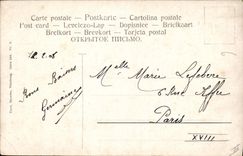 Carte postale — Postkarte — Cartolina postale
Post card — Levelezo-Lap — Dopisnice — Briefkaart
Brefkort — Brevkort — Tarjeta postal
ОТКРЫТОЕ ПИСЬМО.
12.2.08
Bons Baisers
Germaine
Mlle Marie Lefebvre
6 Rue
Paris
XVIII